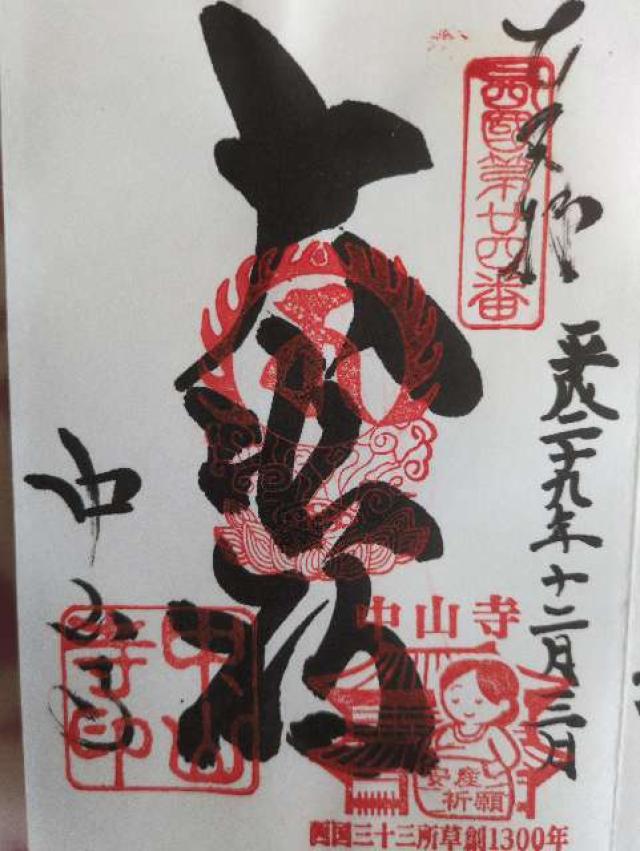 西國第廿四番
平成二十九年十二月三日
大悲殿
中山寺
中山寺印
中山寺
安産
祈願
西国三十三所草創1300年